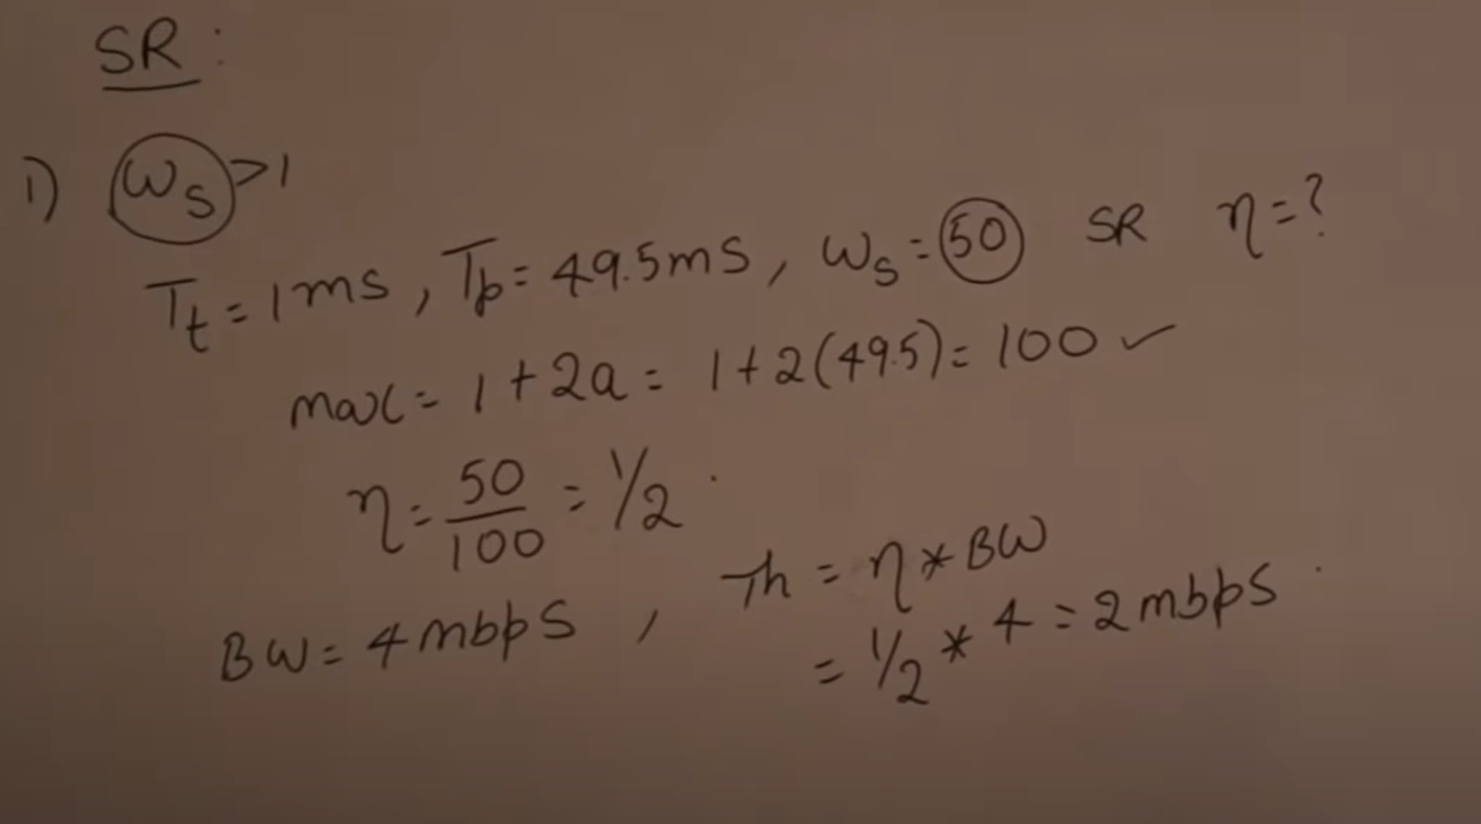 SR :
1) Ws >1
Tt = 1ms , Tp = 49.5ms , Ws = 50 SR η = ?
max = 1 + 2a = 1 + 2(49.5) = 100 ✓
η = 50/100 = 1/2 .
BW = 4 mbps , Th = η * BW
= 1/2 * 4 = 2 mbps .